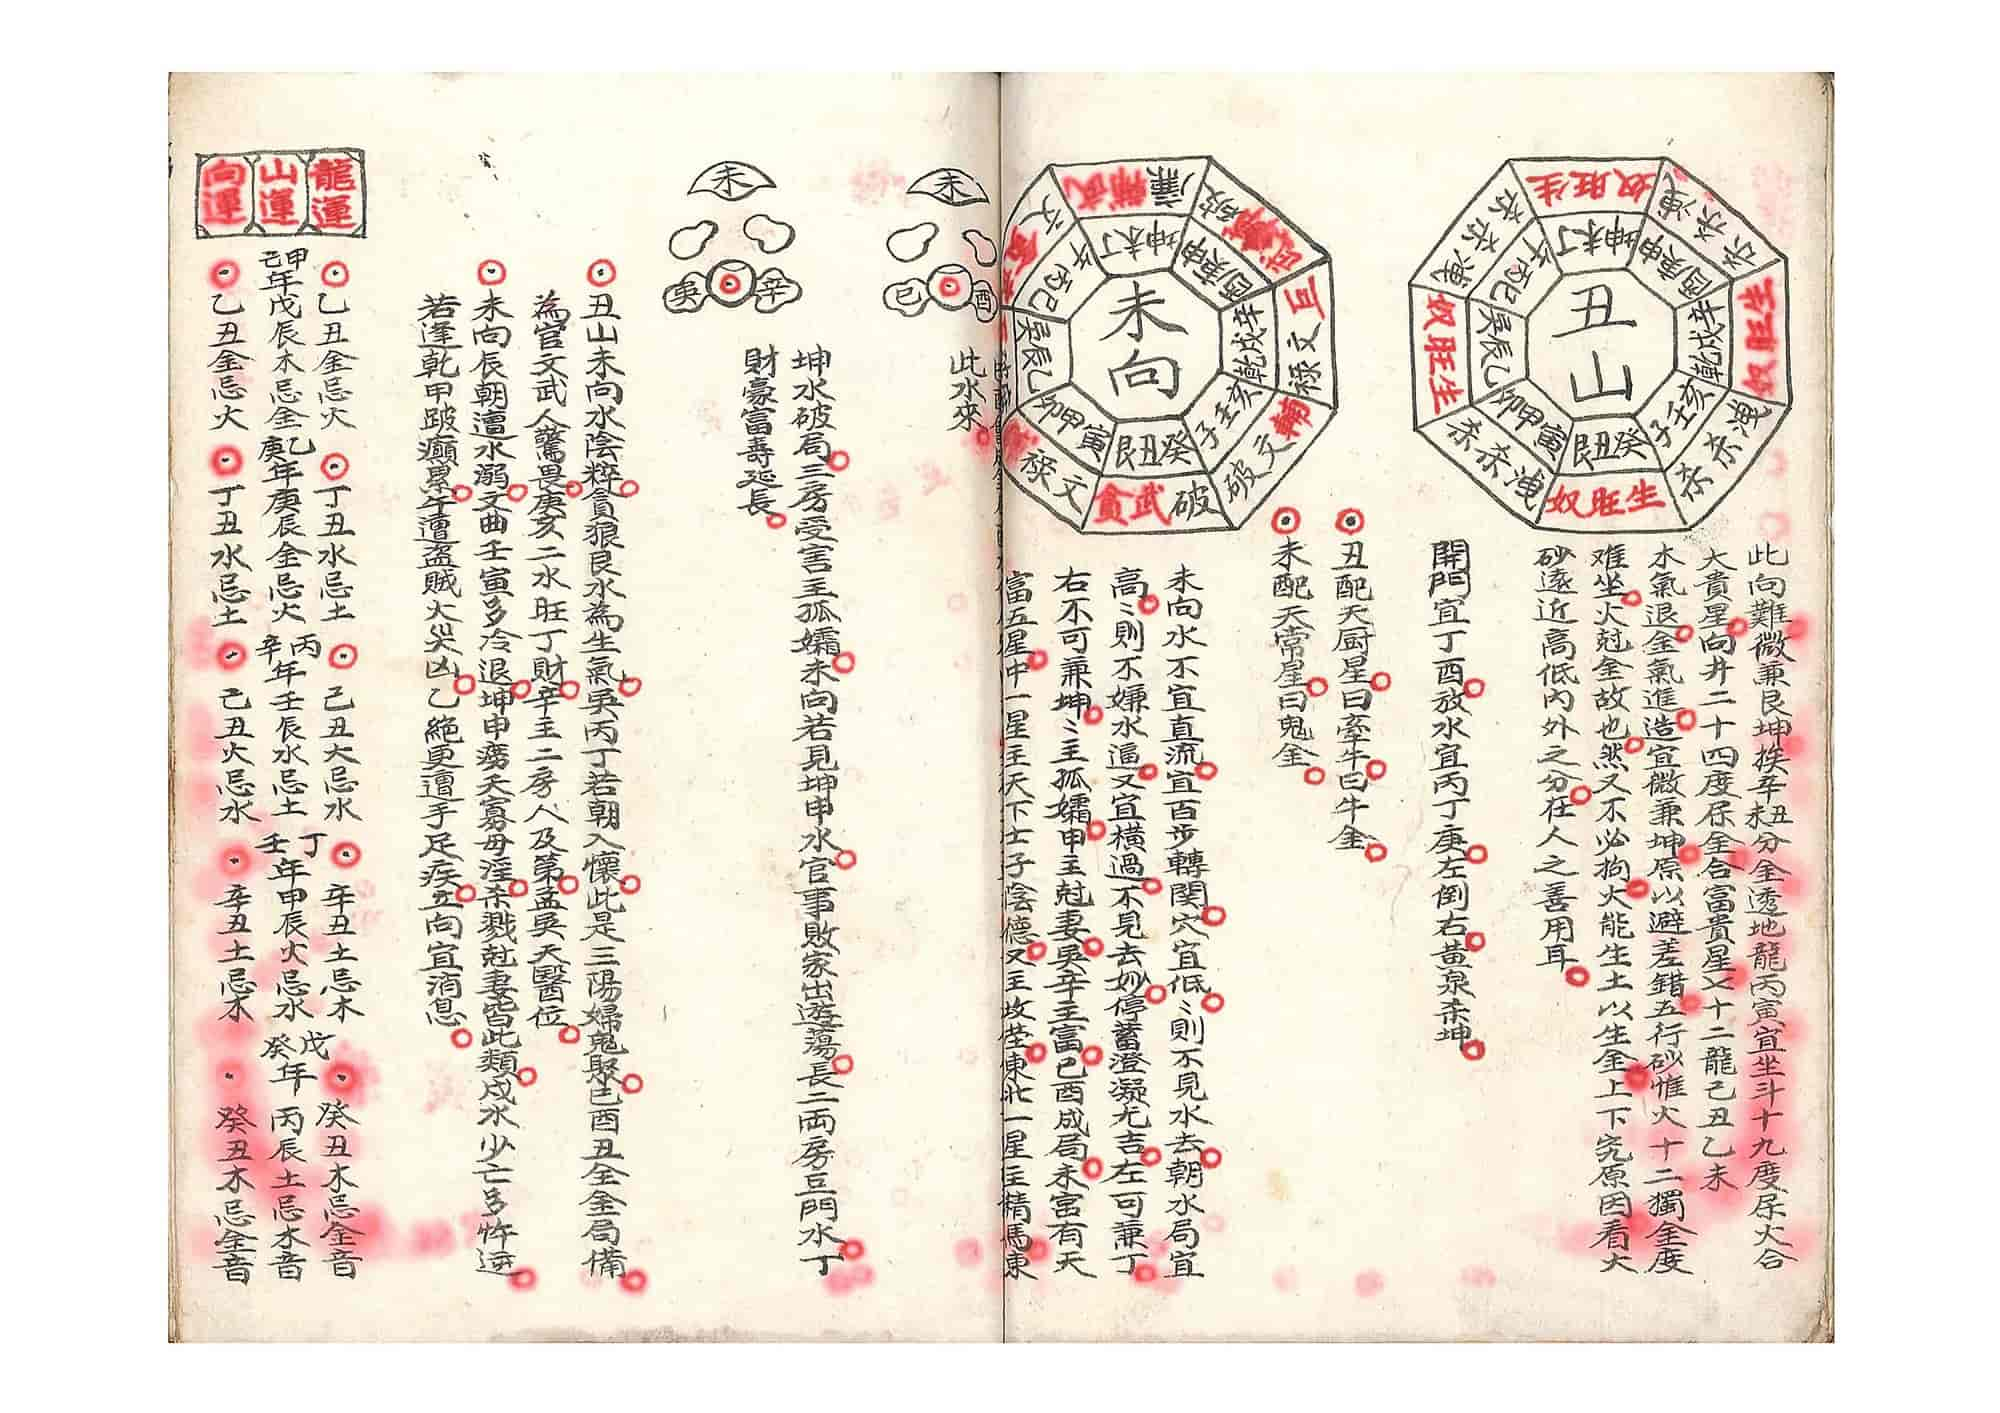 丑山
癸丑艮
寅甲卯
乙辰巽
巳丙午
丁未坤
申庚酉
辛戌乾
亥壬子
生旺奴
洩杀杀
奴旺生
杀杀洩
奴旺生
洩杀杀
生旺奴
洩杀杀
此向難微兼艮坤挨辛丑辛未分金透地龍丙寅宜坐斗十九度尿火合
大貴星向井二十四度尿金合富貴星七十二龍己丑乙未
木氣退金氣進造宜微兼坤原以避差錯五行砂惟火十二獨金度
难坐火尅金故也然又不必拘火能生土以生金上下究原因看大
砂遠近高低內外之分在人之善用耳
開門宜丁酉放水宜丙丁庚左倒右黄泉杀坤
丑配天厨星曰牽牛曰牛金
未配天常星曰鬼金
未向
癸丑艮
寅甲卯
乙辰巽
巳丙午
丁未坤
申庚酉
辛戌乾
亥壬子
破武貪
文禄
廉
破
巨文禄
輔文破
未向水不宜直流宜百步轉関穴宜低〻則不見水去朝水局宜
高〻則不嫌水逼又宜橫過不見去妙停蓄澄凝尤吉左可兼丁
右不可兼坤〻主孤孀申主尅妻巽辛主富巳酉成局未富有天
富五星中一星主天下士子陰德又主坟茔東北一星主精馬東
未
巳
酉
此水來
未
巽
辛
坤水破局三房受害主孤孀未向若見坤申水官事敗家出遊蕩長二両房巨門水丁
財豪富壽延長
丑山未向水陰粹貪狼艮水為生氣巽丙丁若朝入懷此是三陽婦鬼聚巳酉丑全金局備
為官文武人驚畏庚亥二水旺丁財辛主二房人及第孟巽天醫位
未向辰朝遭水溺文曲壬寅多冷退坤申癆夭寡母淫杀戮尅妻皆此類戌水少亡多忤逆
若逢乾甲跛癲累年遭盗賊火災凶乙絕更遭手足疾立向宜消息
龍運
山運
向運
乙丑金忌火 丁丑水忌土 己丑火忌水 辛丑土忌木 癸丑木忌金音
甲己年戊辰木忌金 乙庚年庚辰金忌火 丙辛年壬辰水忌土 丁壬年甲辰火忌水 戊癸年丙辰土忌木音
乙丑金忌火 丁丑水忌土 己丑火忌水 辛丑土忌木 癸丑木忌金音